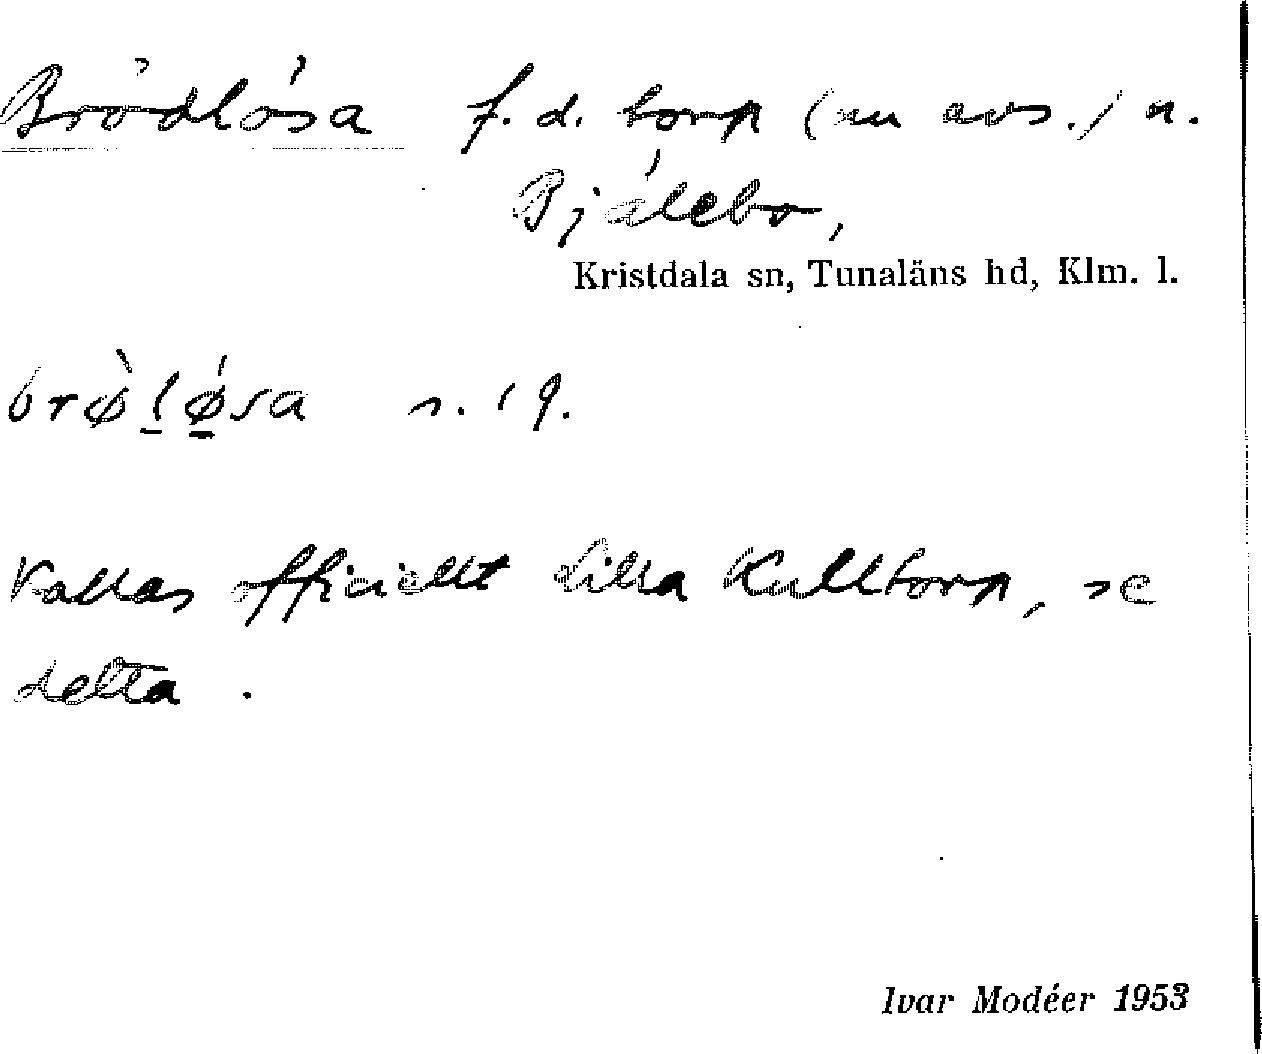 Brödlösa f. d. torp (nu avs.) u.
Bjälebo,
Kristdala sn, Tunaläns hd, Klm. l.
brø̀lǿsa s. 19.
Kallas officiellt Lilla Kulltorp, se
detta.
Ivar Modéer 1953